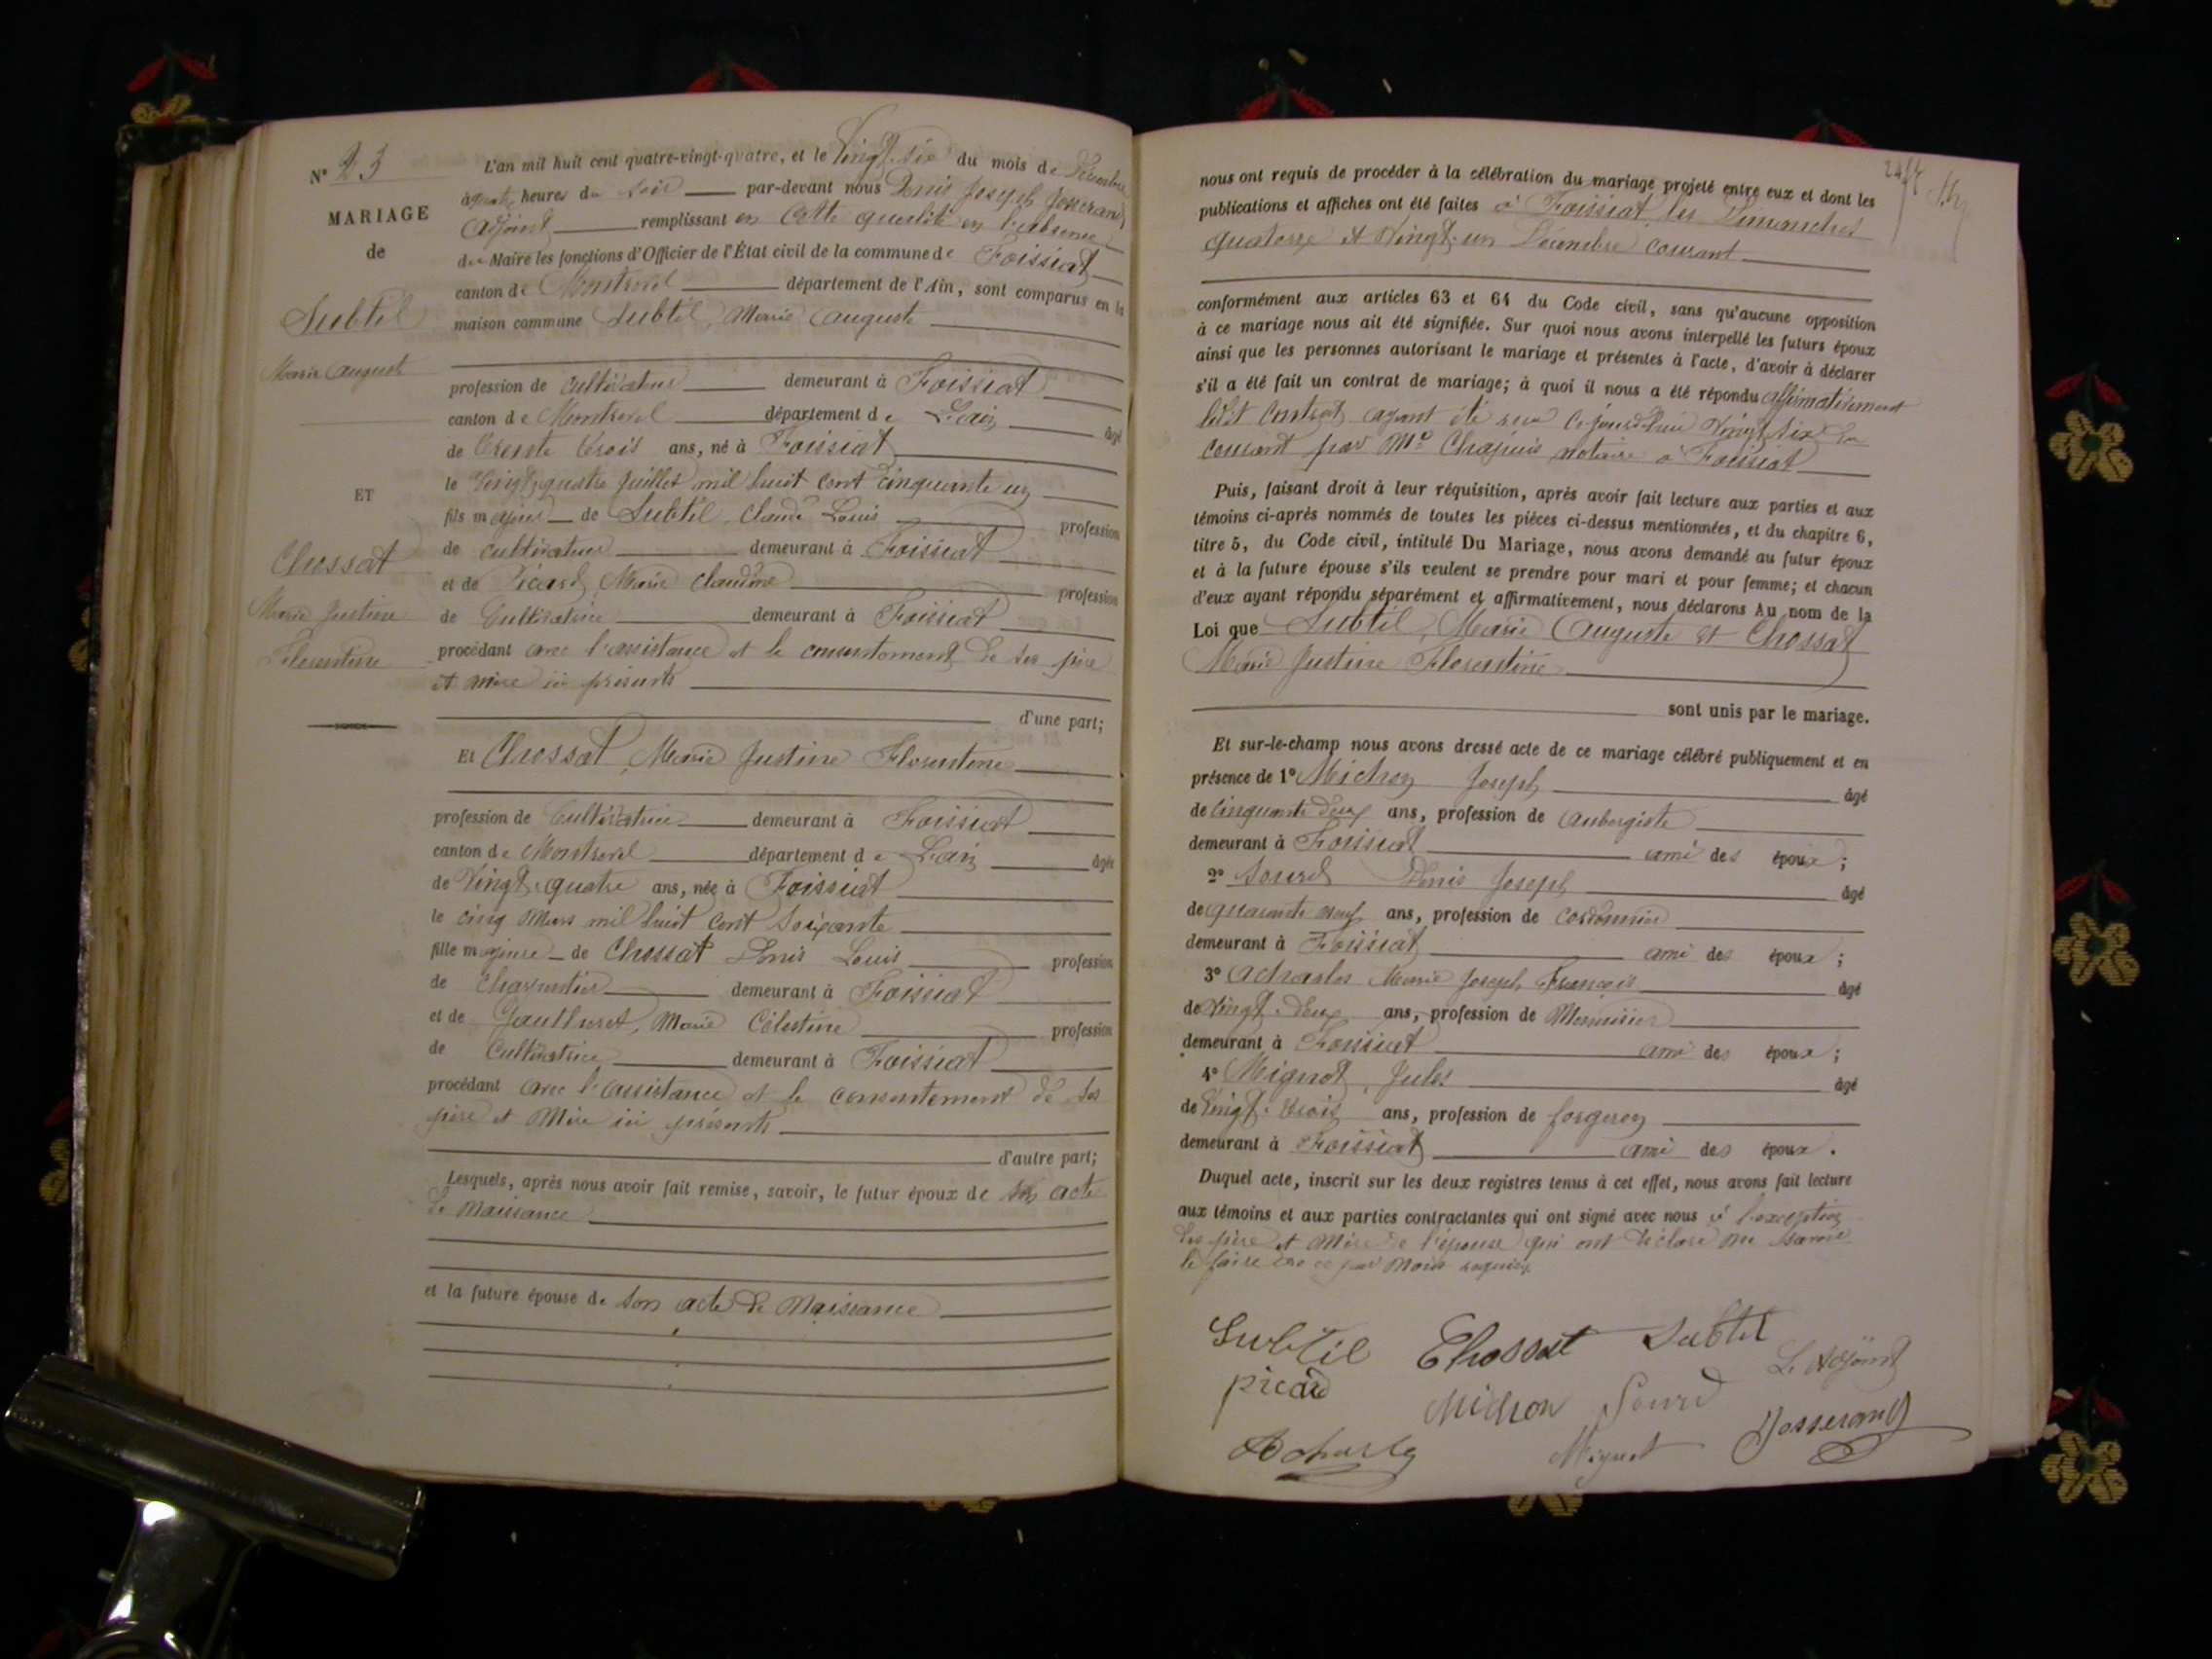 N° 23
MARIAGE
de
Subtil
Marie Auguste
ET
Chossat
Marie Justine
Florentine
L'an mil huit cent quatre-vingt-quatre, et le Vingt-six du mois de Décembre
à quatre heures du soir par-devant nous Denis Joseph Josserand
Adjoint remplissant en cette qualité en l'absence
du Maire les fonctions d'Officier de l'État civil de la commune de Foissiat
canton de Montrevel département de l'Ain, sont comparus en la
maison commune Subtil, Marie Auguste
profession de cultivateur demeurant à Foissiat
canton de Montrevel département de L'ain âgé
de trente trois ans, né à Foissiat
le Vingt-quatre Juillet mil huit cent cinquante un
fils majeur de Subtil, Claude Louis profession
de cultivateur demeurant à Foissiat
et de Picard, Marie Claudine profession
de Cultivatrice demeurant à Foissiat
procédant avec l'assistance et le consentement de ses père
et mère ici présents
d'une part;
Et Chossat, Marie Justine Florentine
profession de Cultivatrice demeurant à Foissiat
canton de Montrevel département de L'ain âgée
de Vingt-quatre ans, née à Foissiat
le cinq Mars mil huit cent soixante
fille majeure de Chossat Denis Louis profession
de Charpentier demeurant à Foissiat
et de Gautheret, Marie Célestine profession
de Cultivatrice demeurant à Foissiat
procédant avec l'assistance et le consentement de ses
père et Mère ici présents
d'autre part;
Lesquels, après nous avoir fait remise, savoir, le futur époux de son acte
de Naissance
et la future épouse de son acte de Naissance
nous ont requis de procéder à la célébration du mariage projeté entre eux et dont les
publications et affiches ont été faites à Foissiat les Dimanches
quatorze et Vingt-un Décembre courant
conformément aux articles 63 et 64 du Code civil, sans qu'aucune opposition
à ce mariage nous ait été signifiée. Sur quoi nous avons interpellé les futurs époux
ainsi que les personnes autorisant le mariage et présentes à l'acte, d'avoir à déclarer
s'il a été fait un contrat de mariage; à quoi il nous a été répondu affirmativement
ledit contrat ayant été reçu ce jourd'hui Vingt six du
courant par Me Chapuis notaire à Foissiat
Puis, faisant droit à leur réquisition, après avoir fait lecture aux parties et aux
témoins ci-après nommés de toutes les pièces ci-dessus mentionnées, et du chapitre 6,
titre 5, du Code civil, intitulé Du Mariage, nous avons demandé au futur époux
et à la future épouse s'ils veulent se prendre pour mari et pour femme; et chacun
d'eux ayant répondu séparément et affirmativement, nous déclarons Au nom de la
Loi que Subtil, Marie Auguste et Chossat
Marie Justine Florentine
sont unis par le mariage.
Et sur-le-champ nous avons dressé acte de ce mariage célébré publiquement et en
présence de 1° Michon Joseph âgé
de cinquante deux ans, profession de Aubergiste
demeurant à Foissiat ami des époux;
2° Sourd Denis Joseph âgé
de quarante neuf ans, profession de cordonnier
demeurant à Foissiat ami des époux;
3° Acharles Marie Joseph François âgé
de Vingt-deux ans, profession de Menuisier
demeurant à Foissiat ami des époux;
4° Mignot, Jules âgé
de Vingt-trois ans, profession de forgeron
demeurant à Foissiat ami des époux.
Duquel acte, inscrit sur les deux registres tenus à cet effet, nous avons fait lecture
aux témoins et aux parties contractantes qui ont signé avec nous à l'exception
des père et Mère de l'épouse qui ont déclaré ne savoir
le faire de ce par Nous requis
Subtil Chossat Subtil
Le Adjoint
picard Michon Sourd Josserand
Acharles Mignot